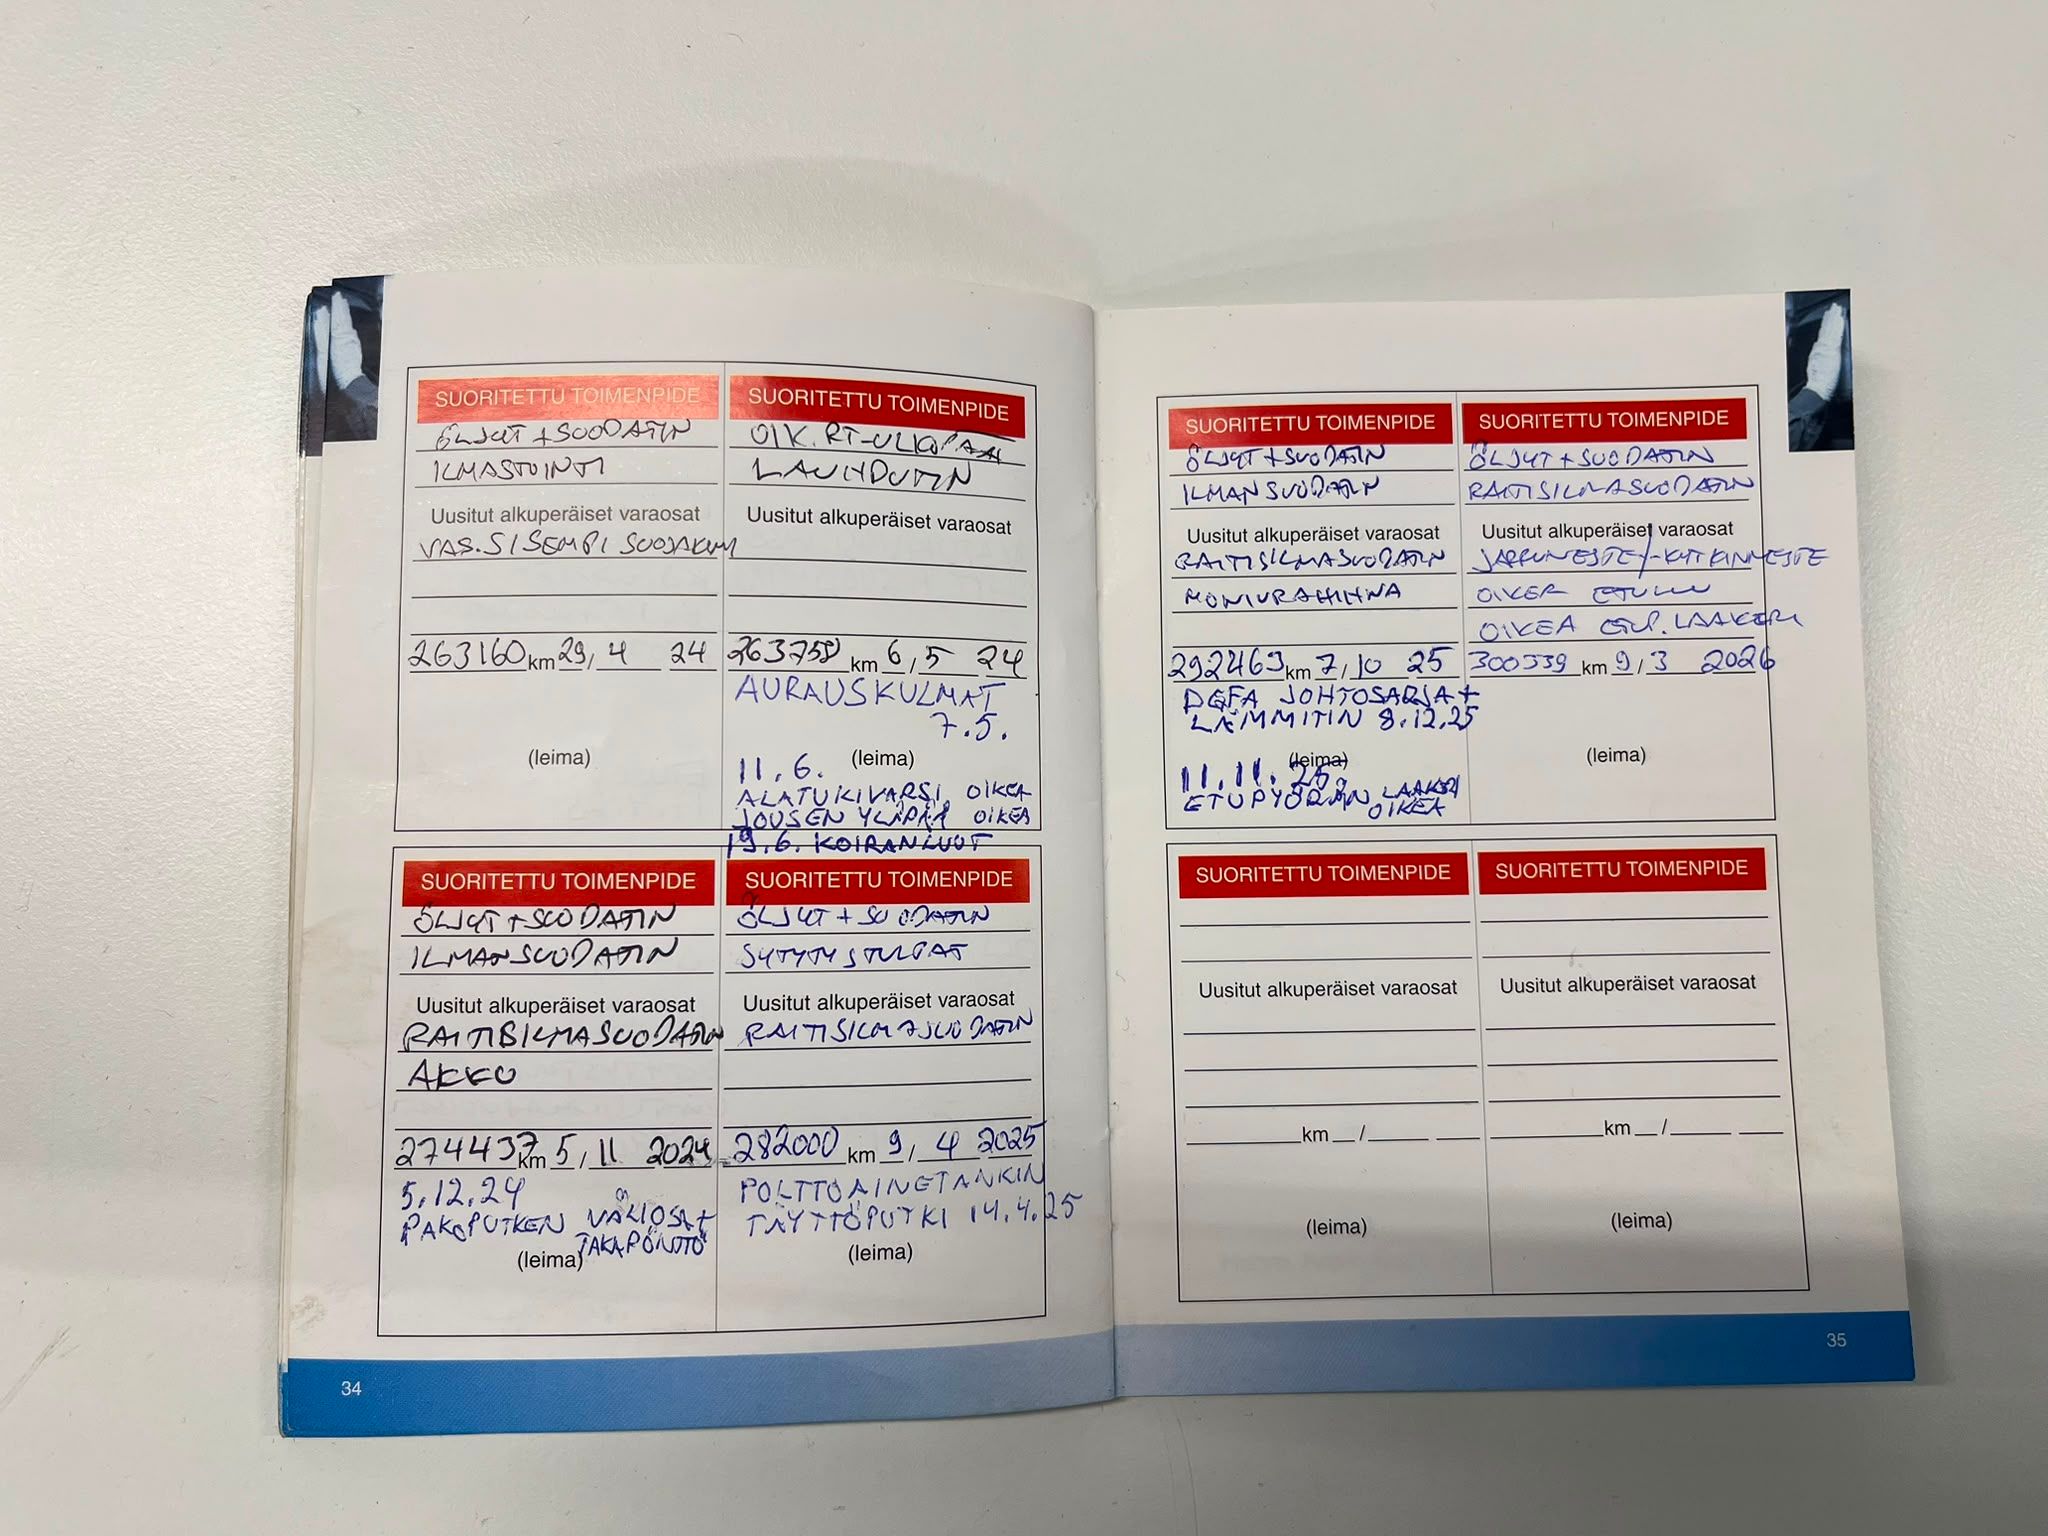 SUORITETTU TOIMENPIDE
ÖLJYT + SUODATIN
ILMASTOINTI
Uusitut alkuperäiset varaosat
VAS. SISEMPI SUOJAKUMI
263160 km 29/4 24
(leima)
SUORITETTU TOIMENPIDE
OIK. RT-ULKOPÄÄ
LAUHDUTIN
Uusitut alkuperäiset varaosat
263758 km 6/5 24
AURAUSKULMAT
7.5.
(leima)
11.6.
ALATUKIVARSI OIKEA
JOUSEN YLÄPÄÄ OIKEA
19.6. KOIRANLUUT
SUORITETTU TOIMENPIDE
ÖLJYT + SUODATIN
ILMANSUODATIN
Uusitut alkuperäiset varaosat
RAITISILMASUODATIN
AKKU
274437 km 5/11 2024
5.12.24
PAKOPUTKEN VÄLIOSA +
TAKAPÖNTTÖ
(leima)
SUORITETTU TOIMENPIDE
ÖLJYT + SUODATIN
SYTYTYSTULPAT
Uusitut alkuperäiset varaosat
RAITISILMASUODATIN
282000 km 9/4 2025
POLTTOAINETANKIN
TÄYTTÖPUTKI 14.4.25
(leima)
34
SUORITETTU TOIMENPIDE
ÖLJYT + SUODATIN
ILMANSUODATIN
Uusitut alkuperäiset varaosat
RAITISILMASUODATIN
MONIURAHIHNA
292463 km 7/10 25
DEFA JOHTOSARJA +
LÄMMITIN 8.12.25
(leima)
11.11.25
ETUPYÖRÄN LAAKERI
OIKEA
SUORITETTU TOIMENPIDE
ÖLJYT + SUODATIN
RAITISILMASUODATIN
Uusitut alkuperäiset varaosat
JARRUNESTE/-KYTKINNESTE
OIKEA ETULU
OIKEA ETUP. LAAKERI
300539 km 9/3 2026
(leima)
SUORITETTU TOIMENPIDE
Uusitut alkuperäiset varaosat
km /
(leima)
SUORITETTU TOIMENPIDE
Uusitut alkuperäiset varaosat
km /
(leima)
35